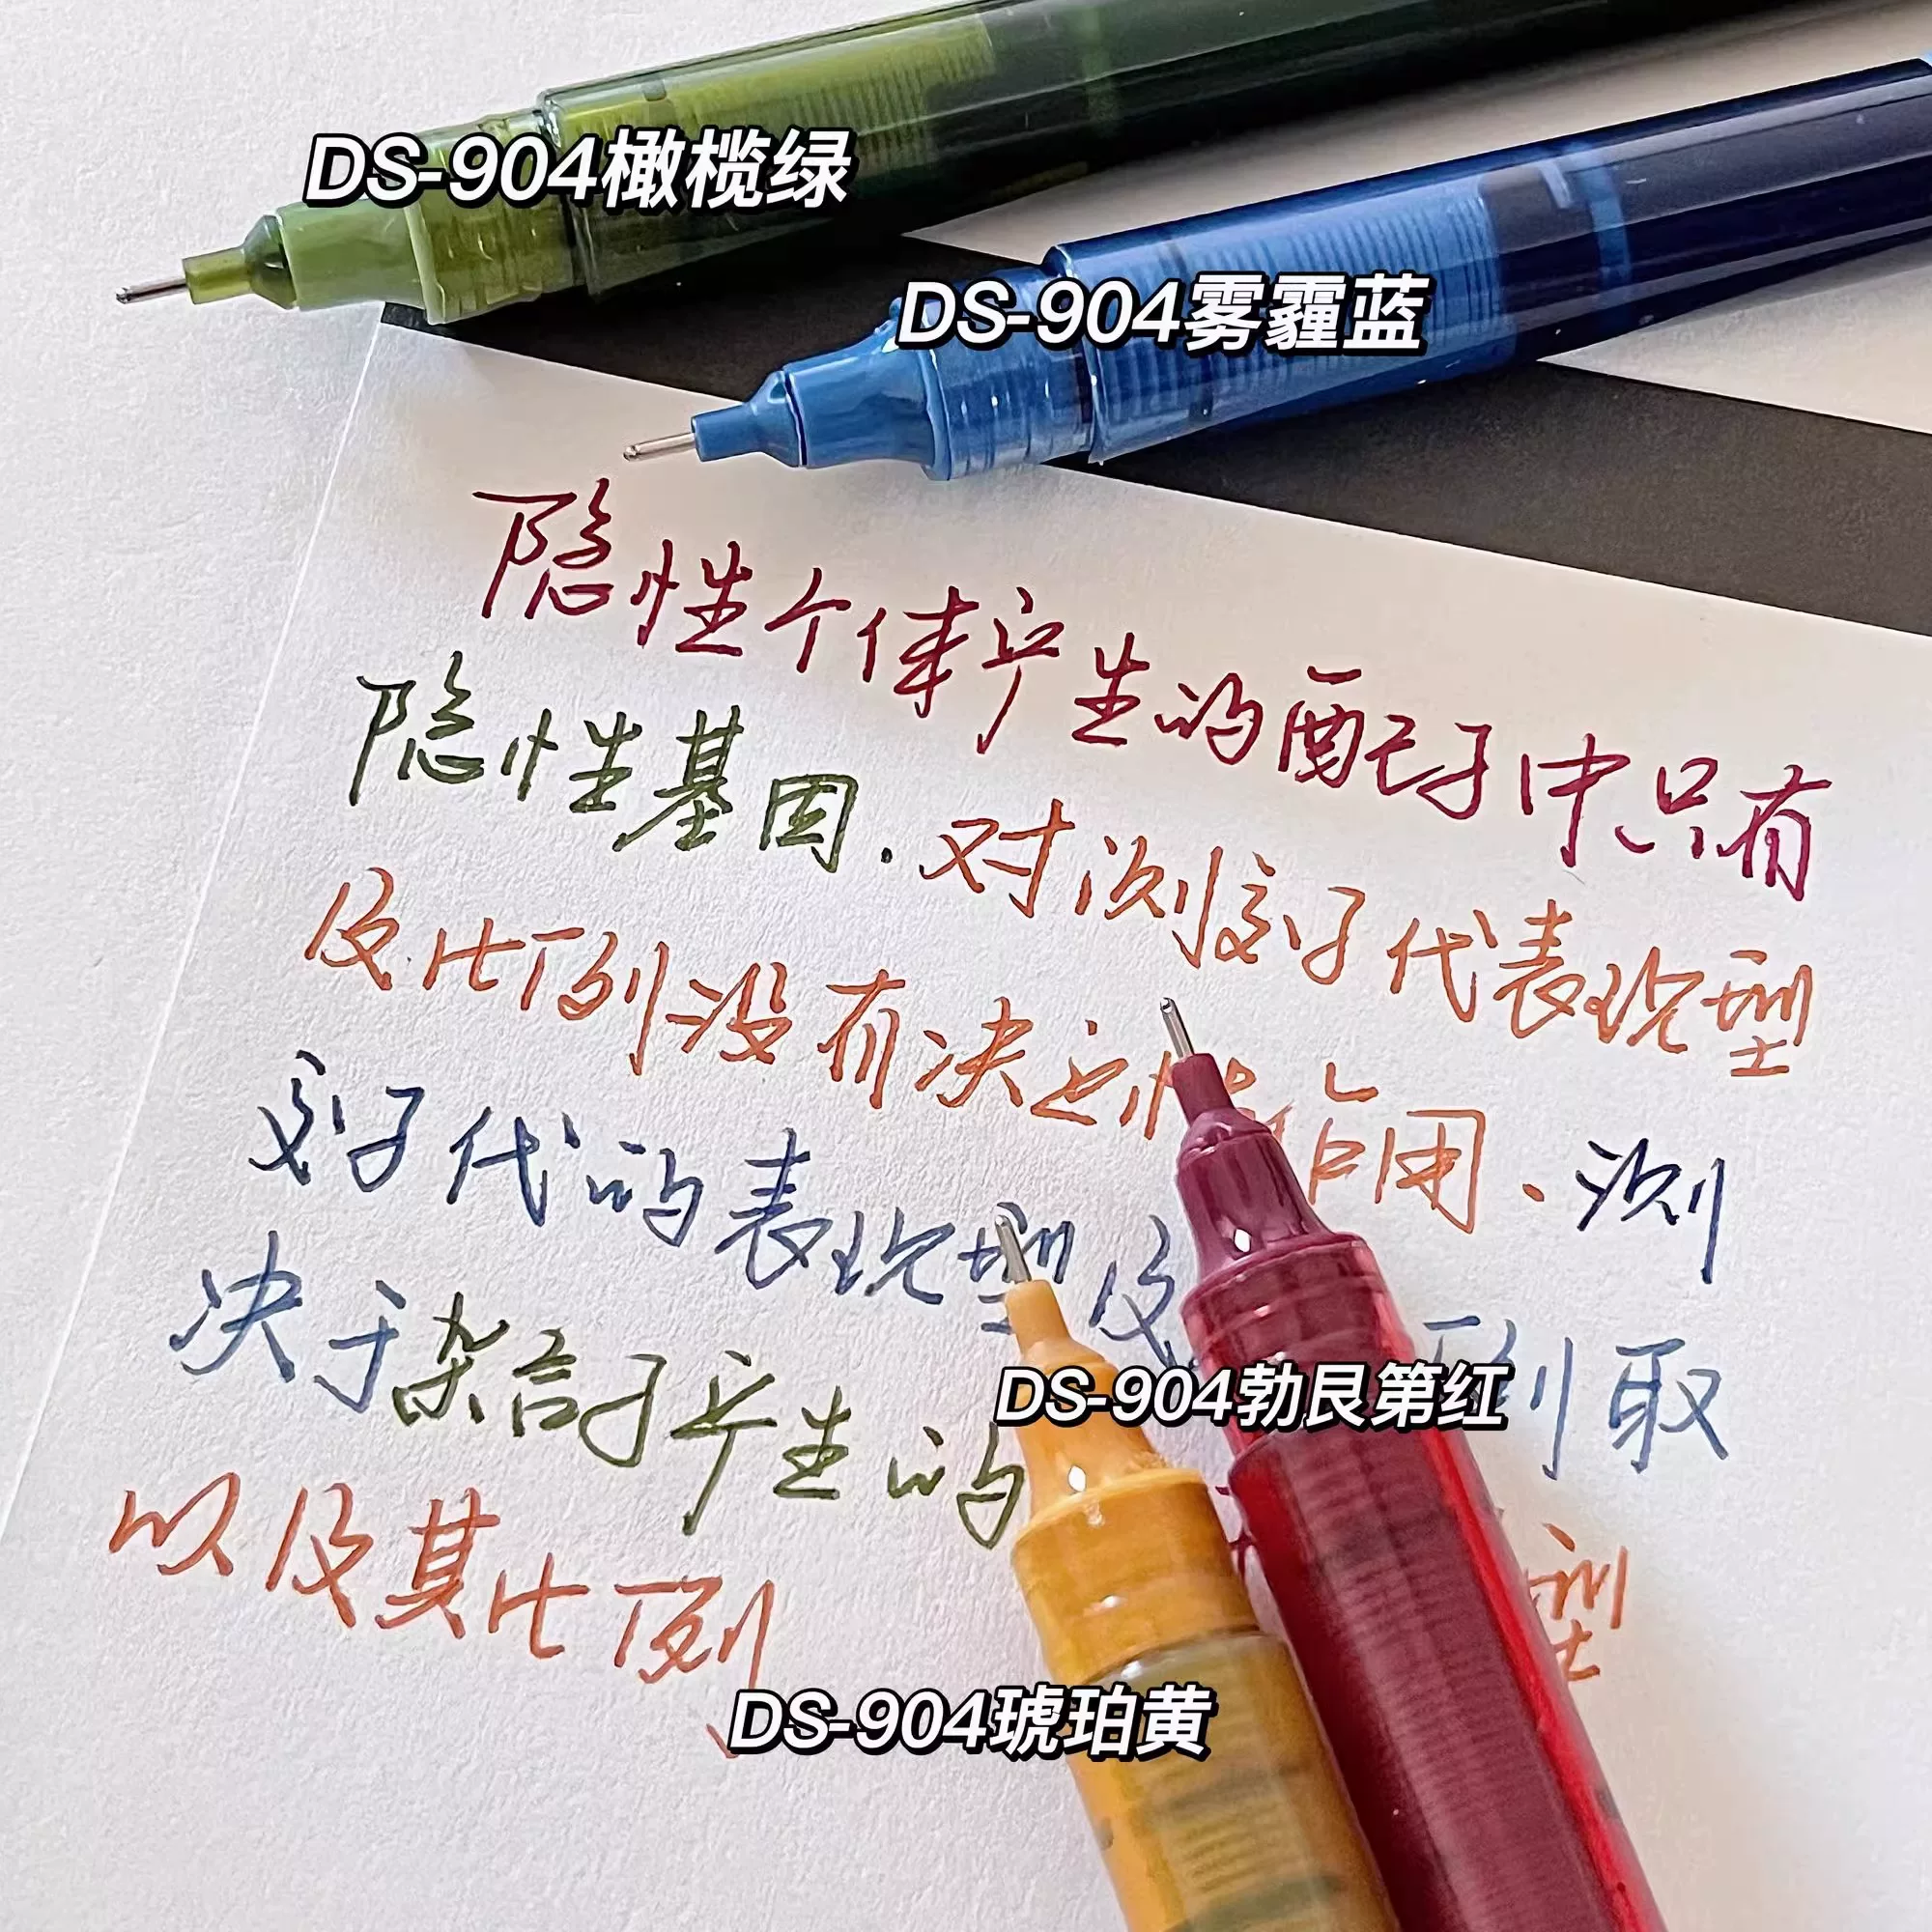 DS-904橄榄绿
DS-904雾霾蓝
隐性个体产生的配子中只有
隐性基因.对测交子代表现型
及比例没有决定性作用.测
交子代的表现型及 例取
决于杂合子产生的
以及其比例 型
DS-904勃艮第红
DS-904琥珀黄